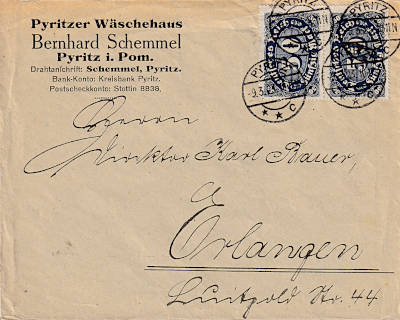 Pyritzer Wäschehaus
Bernhard Schemmel
Pyritz i. Pom.
Drahtanschrift: Schemmel, Pyritz.
Bank-Konto: Kreisbank Pyritz.
Postscheckkonto: Stettin 8838.
PYRITZ
PYRITZ
9.3.
* * c
Herrn
Direktor Karl Bauer,
Erlangen
Luitpold Str. 44